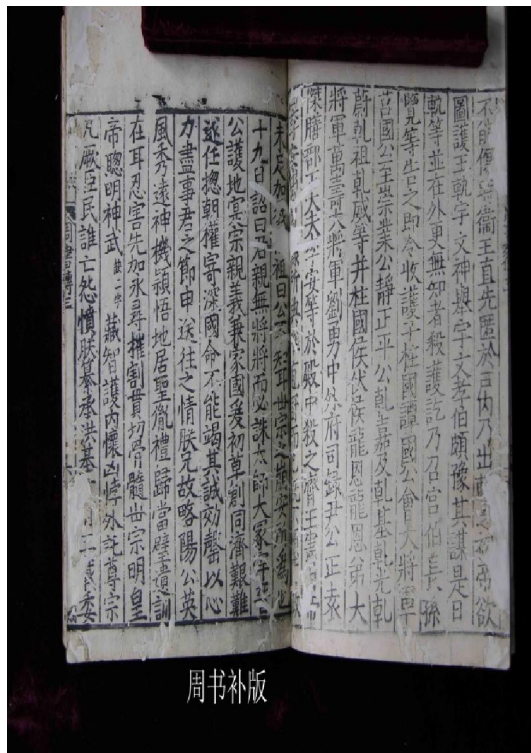 不能傷時衛王直先匿於戶內乃出斬之初帝欲
圖護王軌宇文神舉宇文孝伯頗豫其謀是日
軌等並在外更無知者殺護訖乃召宮伯長孫
覽等告之即令收護子柱國譚國公會大將軍
莒國公至崇業公靜正平公乾嘉及乾基乾光乾
蔚乾祖乾威等并柱國侯伏侯龍恩龍恩弟大
將軍萬壽大將軍劉勇中外府司錄尹公正袁
傑膳部下大夫李安等於殿中殺之齊王憲
未足加戮 祖曰公不知耳世宗之崩安所為也
十九日詔曰君親無將將而必誅太師大冢宰
公護地寔宗親義兼家國爰初草創同濟艱難
遂任摠朝權寄深國命不能竭其誠効罄以心
力盡事君之節申送往之情朕兄故略陽公英
風秀遠神機穎悟地居聖胤禮歸當璧遺訓
在耳忍害先加永尋摧割貫切骨髓世宗明皇
帝聰明神武 缺二字 藏智護內懷凶悖外託尊宗
凡厥臣民誰亡怨憤朕纂承洪基 三載委
周書傳三
周书补版